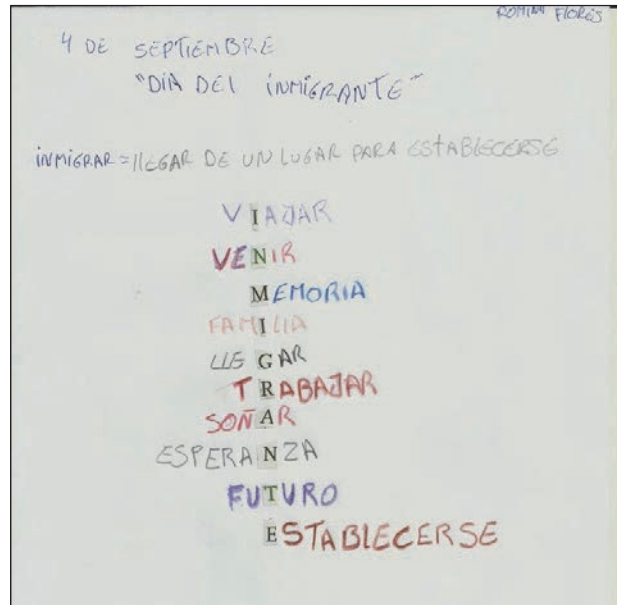 ROMINA FLORES
4 DE SEPTIEMBRE
"DIA DEL INMIGRANTE"
INMIGRAR = llEGAR DE UN LUGAR PARA ESTABLECERSE
VIAJAR
VENIR
MEMORIA
FAMILIA
LLEGAR
TRABAJAR
SOÑAR
ESPERANZA
FUTURO
ESTABLECERSE